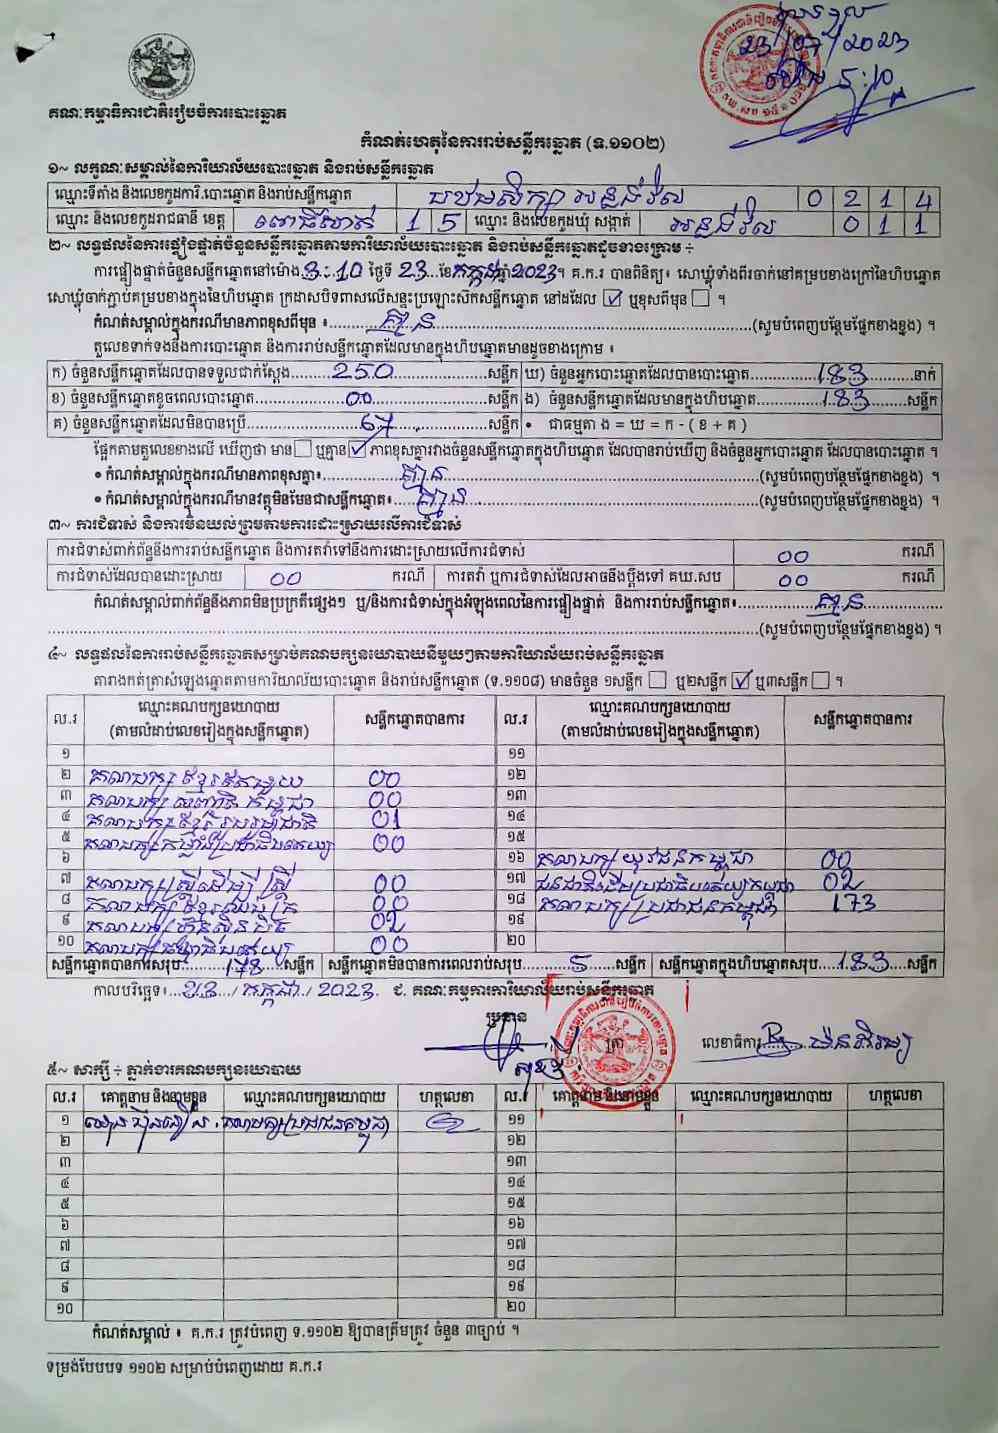 23/07/2023
គណៈកម្មាធិការជាតិរៀបចំការបោះឆ្នោត
កំណត់ហេតុនៃការរាប់សន្លឹកឆ្នោត (ទ.១១០២)
១~ លក្ខណៈសម្គាល់នៃការិយាល័យបោះឆ្នោត និងរាប់សន្លឹកឆ្នោត
ឈ្មោះទីតាំង និងលេខកូដការិ.បោះឆ្នោត និងរាប់សន្លឹកឆ្នោត បឋមសិក្សា អន្លង់វិល 0 2 1 4
ឈ្មោះ និងលេខកូដរាជធានី ខេត្ត ពោធិ៍សាត់ 1 5 ឈ្មោះ និងលេខកូដឃុំ សង្កាត់ អន្លង់វិល 0 1 1
២~ លទ្ធផលនៃការផ្ទៀងផ្ទាត់ចំនួនសន្លឹកឆ្នោតតាមការិយាល័យបោះឆ្នោត និងរាប់សន្លឹកឆ្នោតដូចខាងក្រោម ÷
ការផ្ទៀងផ្ទាត់ចំនួនសន្លឹកឆ្នោតនៅម៉ោង 3:10 ថ្ងៃទី 23 ខែ កក្កដា ឆ្នាំ 2023 ។ គ.ក.រ បានពិនិត្យ៖ សោឃ្លុំទាំងពីរចាក់នៅគម្របខាងក្រៅនៃហិបឆ្នោត
សោឃ្លុំចាក់ភ្ជាប់គម្របខាងក្នុងនៃហិបឆ្នោត ក្រដាសបិទពាសលើសន្ទះប្រឡោះសឹកសន្លឹកឆ្នោត នៅដដែល ☑ ឬខុសពីមុន ☐ ។
កំណត់សម្គាល់ក្នុងករណីមានភាពខុសពីមុន ៖ គ្មាន (សូមបំពេញបន្ថែមផ្នែកខាងខ្នង) ។
តួលេខទាក់ទងនឹងការបោះឆ្នោត និងការរាប់សន្លឹកឆ្នោតដែលមានក្នុងហិបឆ្នោតមានដូចខាងក្រោម ៖
ក) ចំនួនសន្លឹកឆ្នោតដែលបានទទួលជាក់ស្តែង 250 សន្លឹក ឃ) ចំនួនអ្នកបោះឆ្នោតដែលបានបោះឆ្នោត 183 នាក់
ខ) ចំនួនសន្លឹកឆ្នោតខូចពេលបោះឆ្នោត 00 សន្លឹក ង) ចំនួនសន្លឹកឆ្នោតដែលមានក្នុងហិបឆ្នោត 183 សន្លឹក
គ) ចំនួនសន្លឹកឆ្នោតដែលមិនបានប្រើ 67 សន្លឹក • ជាធម្មតា ង = ឃ = ក - ( ខ + គ )
ផ្អែកតាមតួលេខខាងលើ ឃើញថា មាន ☐ ឬគ្មាន ☑ ភាពខុសគ្នារវាងចំនួនសន្លឹកឆ្នោតក្នុងហិបឆ្នោត ដែលបានរាប់ឃើញ និងចំនួនអ្នកបោះឆ្នោត ដែលបានបោះឆ្នោត ។
• កំណត់សម្គាល់ក្នុងករណីមានភាពខុសគ្នា៖ គ្មាន (សូមបំពេញបន្ថែមផ្នែកខាងខ្នង) ។
• កំណត់សម្គាល់ក្នុងករណីមានវត្ថុមិនមែនជាសន្លឹកឆ្នោត៖ គ្មាន (សូមបំពេញបន្ថែមផ្នែកខាងខ្នង) ។
៣~ ការជំទាស់ និងការមិនយល់ព្រមតាមការដោះស្រាយលើការជំទាស់
ការជំទាស់ពាក់ព័ន្ធនឹងការរាប់សន្លឹកឆ្នោត និងការតវ៉ាទៅនឹងការដោះស្រាយលើការជំទាស់ 00 ករណី
ការជំទាស់ដែលបានដោះស្រាយ 00 ករណី ការតវ៉ា ឬការជំទាស់ដែលអាចនឹងប្តឹងទៅ គឃ.សប 00 ករណី
កំណត់សម្គាល់ពាក់ព័ន្ធនឹងភាពមិនប្រក្រតីផ្សេងៗ ឬ/និងការជំទាស់ក្នុងអំឡុងពេលនៃការផ្ទៀងផ្ទាត់ និងការរាប់សន្លឹកឆ្នោត៖ គ្មាន
(សូមបំពេញបន្ថែមផ្នែកខាងខ្នង) ។
៤~ លទ្ធផលនៃការរាប់សន្លឹកឆ្នោតសម្រាប់គណបក្សនយោបាយនីមួយៗតាមការិយាល័យរាប់សន្លឹកឆ្នោត
តារាងកត់ត្រាសំឡេងឆ្នោតតាមការិយាល័យបោះឆ្នោត និងរាប់សន្លឹកឆ្នោត (ទ.១១០៨) មានចំនួន ១សន្លឹក ☐ ឬ២សន្លឹក ☑ ឬ៣សន្លឹក ☐ ។
ល.រ ឈ្មោះគណបក្សនយោបាយ (តាមលំដាប់លេខរៀងក្នុងសន្លឹកឆ្នោត) សន្លឹកឆ្នោតបានការ ល.រ ឈ្មោះគណបក្សនយោបាយ (តាមលំដាប់លេខរៀងក្នុងសន្លឹកឆ្នោត) សន្លឹកឆ្នោតបានការ
១ ១១
២ គណបក្ស ខ្មែររួបរួម 00 ១២
៣ គណបក្ស សញ្ជាតិ កម្ពុជា 00 ១៣
៤ គណបក្ស ខ្មែរ រួបរួមជាតិ 01 ១៤
៥ គណបក្ស កម្លាំងប្រជាធិបតេយ្យ 00 ១៥
៦ ១៦ គណបក្ស យុវជនកម្ពុជា 00
៧ គណបក្ស ស្ត្រីដើម្បីស្ត្រី 00 ១៧ ជនជាតិដើមប្រជាធិបតេយ្យកម្ពុជា 02
៨ គណបក្ស ខ្មែរឈប់ក្រ 00 ១៨ គណបក្ស ប្រជាជនកម្ពុជា 173
៩ គណបក្ស ហ៊្វុនស៊ិនប៉ិច 02 ១៩
១០ គណបក្ស ធម្មាធិបតេយ្យ 00 ២០
សន្លឹកឆ្នោតបានការសរុប 178 សន្លឹក សន្លឹកឆ្នោតមិនបានការពេលរាប់សរុប 5 សន្លឹក សន្លឹកឆ្នោតក្នុងហិបឆ្នោតសរុប 183 សន្លឹក
កាលបរិច្ឆេទ៖ 23 / កក្កដា / 2023 ជ. គណៈកម្មការការិយាល័យរាប់សន្លឹកឆ្នោត
ប្រធាន ត្រា លេខាធិការ
៥~ សាក្សី ÷ ភ្នាក់ងារគណបក្សនយោបាយ
ល.រ គោត្តនាម និងនាមខ្លួន ឈ្មោះគណបក្សនយោបាយ ហត្ថលេខា ល.រ គោត្តនាម និងនាមខ្លួន ឈ្មោះគណបក្សនយោបាយ ហត្ថលេខា
១ គណបក្សប្រជាជនកម្ពុជា ១១
២ ១២
៣ ១៣
៤ ១៤
៥ ១៥
៦ ១៦
៧ ១៧
៨ ១៨
៩ ១៩
១០ ២០
កំណត់សម្គាល់ ៖ គ.ក.រ ត្រូវបំពេញ ទ.១១០២ ឱ្យបានត្រឹមត្រូវ ចំនួន ៣ច្បាប់ ។
ទម្រង់បែបបទ ១១០២ សម្រាប់បំពេញដោយ គ.ក.រ